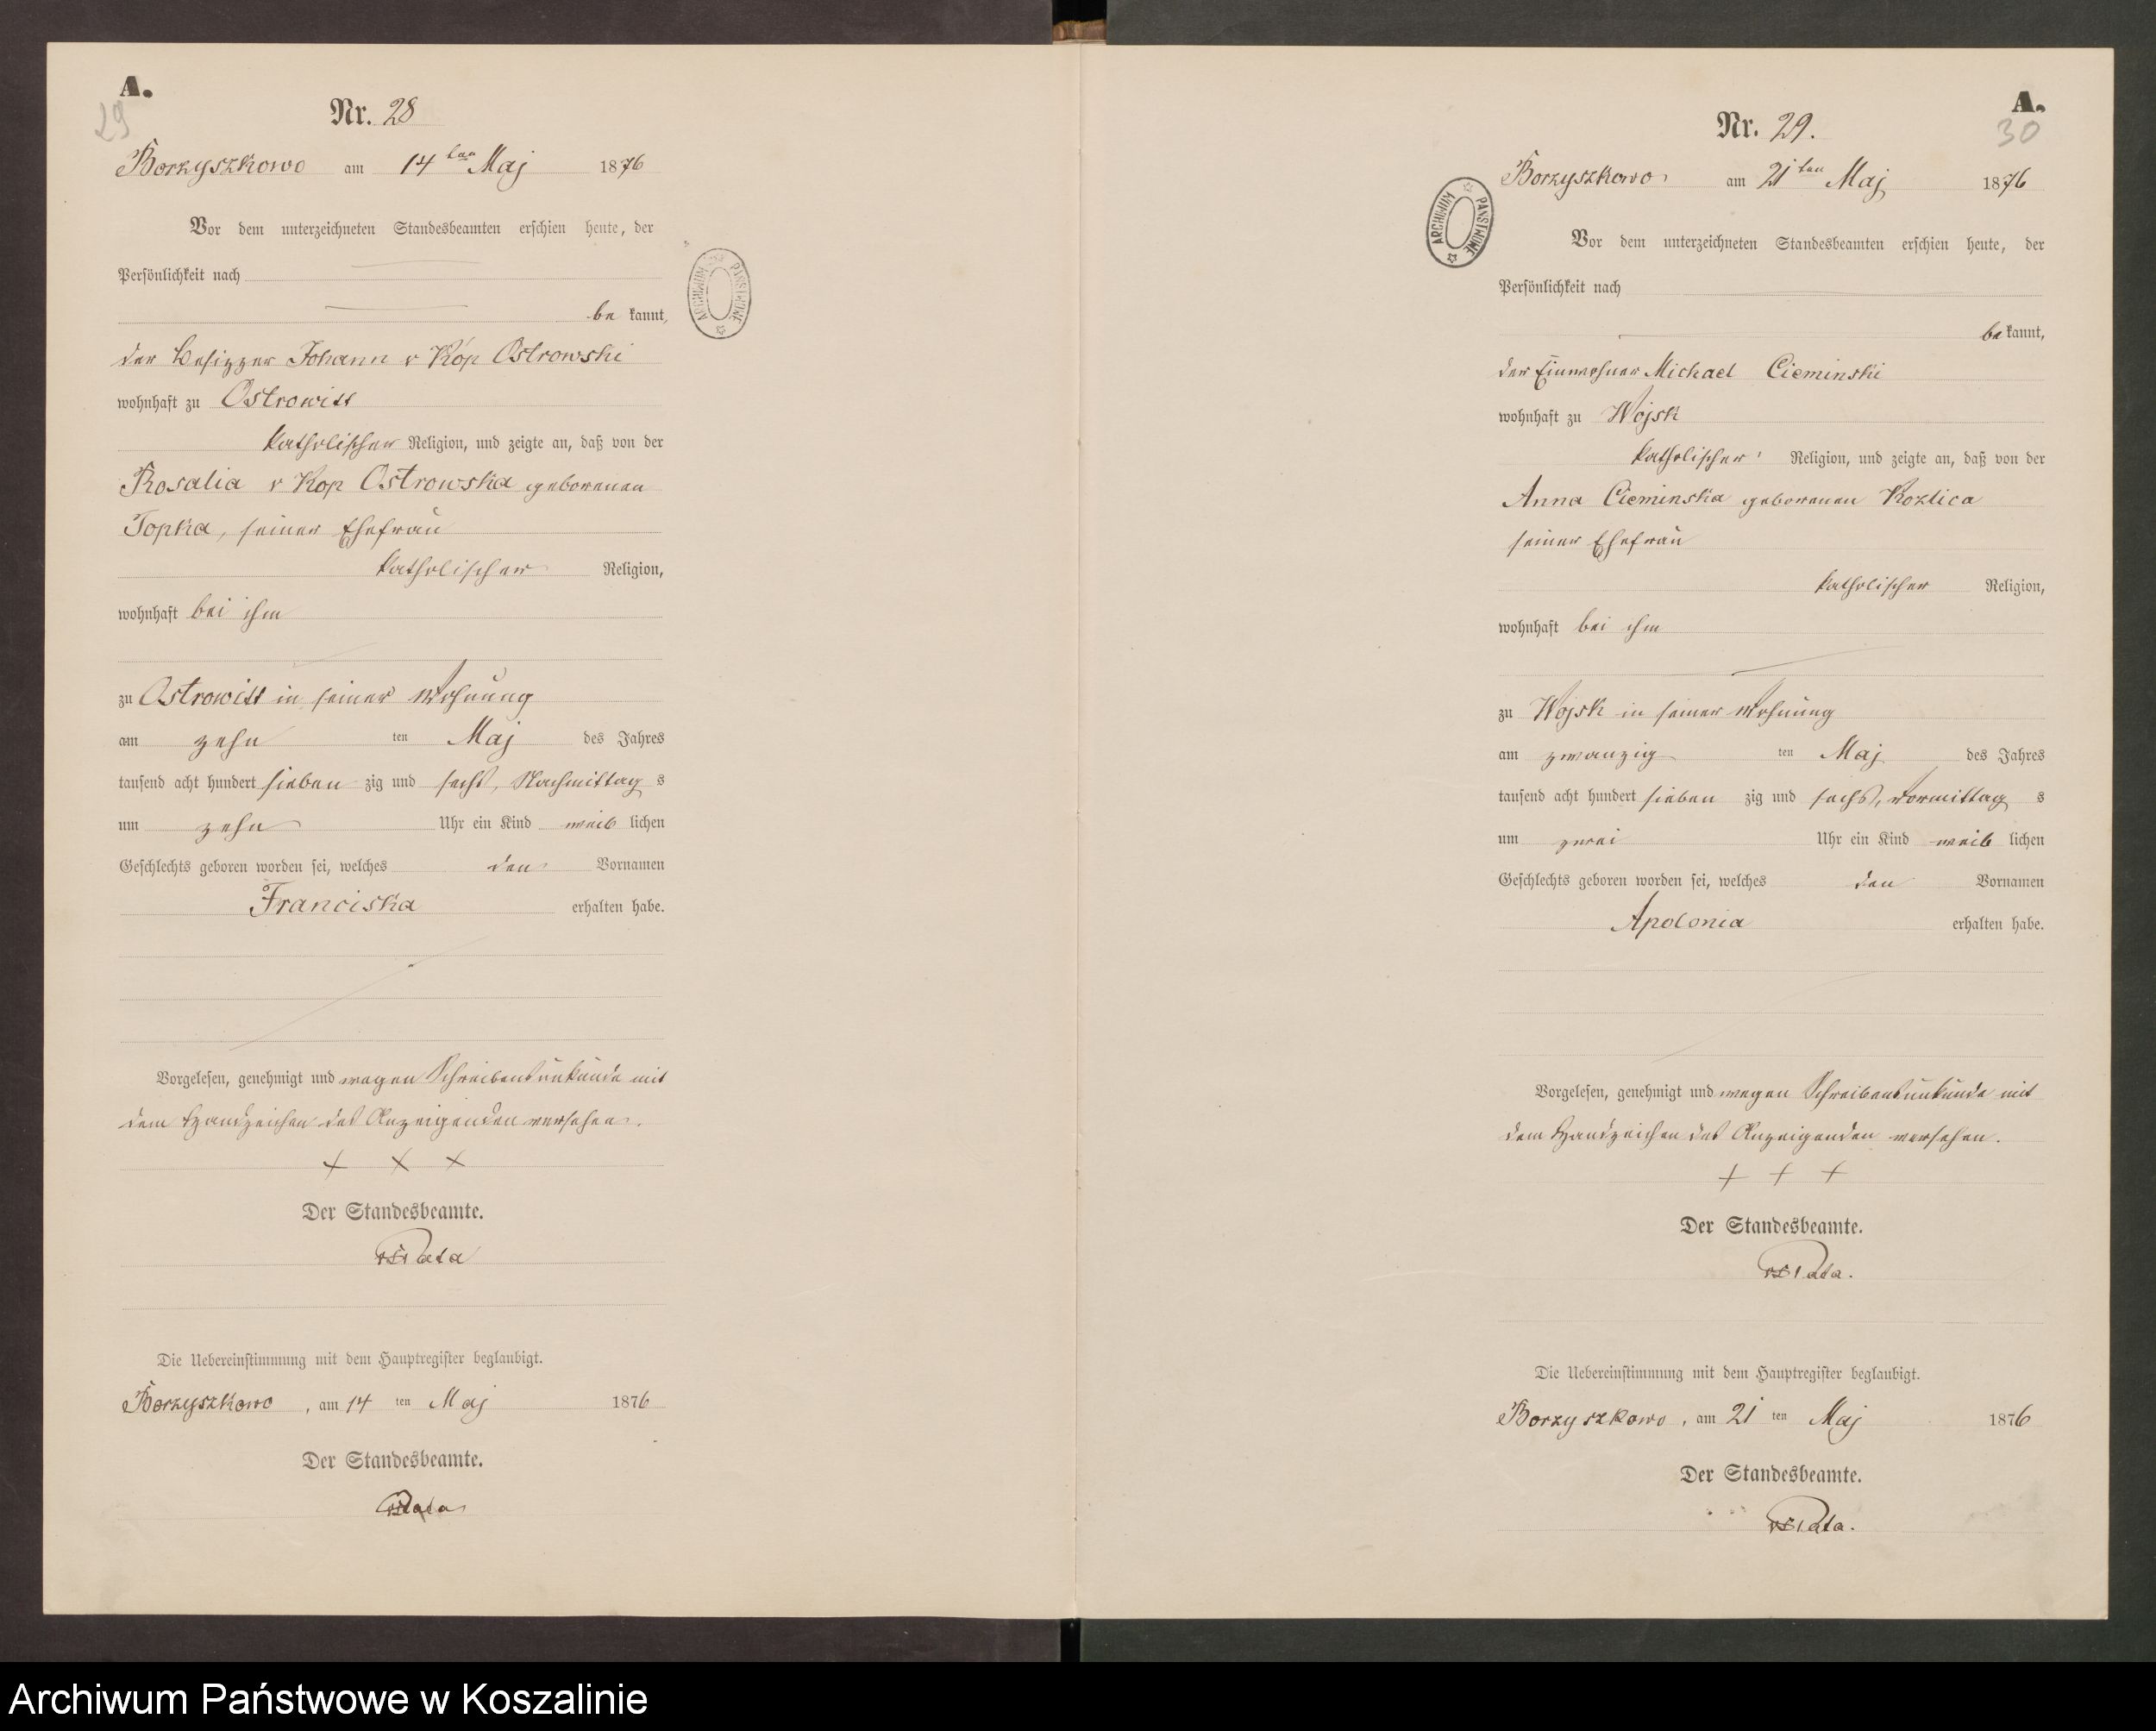 A.
29
Nr. 28
Borzyszkowo am 14ten Maj 1876
Vor dem unterzeichneten Standesbeamten erschien heute, der
Persönlichkeit nach
be kannt,
der Besizzer Johann v Kóp Ostrowski
wohnhaft zu Ostrowitt
katholischer Religion, und zeigte an, daß von der
Rosalia v Kop Ostrowska geborenen
Topka, seiner Ehefrau
katholischer Religion,
wohnhaft bei ihm
zu Ostrowitt in seiner Wohnung
am zehn ten Maj des Jahres
tausend acht hundert sieben zig und sechs, Nachmittag s
um zehn Uhr ein Kind weib lichen
Geschlechts geboren worden sei, welches den Vornamen
Franciska erhalten habe.
Vorgelesen, genehmigt und wegen Schreibensunkunde mit
dem Handzeichen des Anzeigenden versehen.
+ + +
Der Standesbeamte.
Die Uebereinstimmung mit dem Hauptregister beglaubigt.
Borzyszkowo, am 14 ten Maj 1876
Der Standesbeamte.
ARCHIWUM PAŃSTWOWE
A.
30
Nr. 29.
Borzyszkowo am 21ten Maj 1876
Vor dem unterzeichneten Standesbeamten erschien heute, der
Persönlichkeit nach
be kannt,
der Einwohner Michael Cieminski
wohnhaft zu Wojsk
katholischer Religion, und zeigte an, daß von der
Anna Cieminska geborenen Kozlica
seiner Ehefrau
katholischer Religion,
wohnhaft bei ihm
zu Wojsk in seiner Wohnung
am zwanzig ten Maj des Jahres
tausend acht hundert sieben zig und sechs, Vormittag s
um zwei Uhr ein Kind weib lichen
Geschlechts geboren worden sei, welches den Vornamen
Apolonia erhalten habe.
Vorgelesen, genehmigt und wegen Schreibensunkunde mit
dem Handzeichen des Anzeigenden versehen.
+ + +
Der Standesbeamte.
Die Uebereinstimmung mit dem Hauptregister beglaubigt.
Borzyszkowo, am 21 ten Maj 1876
Der Standesbeamte.
ARCHIWUM PAŃSTWOWE
Archiwum Państwowe w Koszalinie